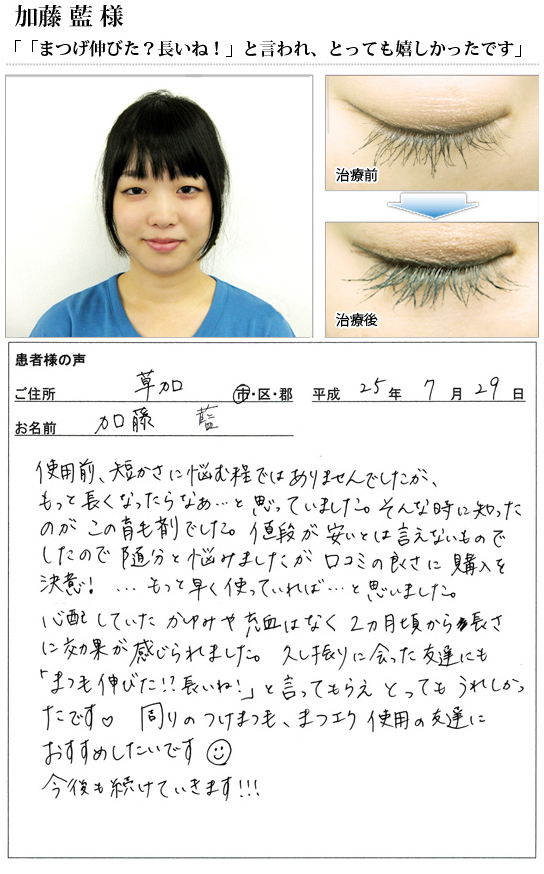 加藤 藍 様
「「まつげ伸びた？長いね！」と言われ、とっても嬉しかったです」
治療前
治療後
患者様の声
ご住所 草加 市・区・郡 平成 25 年 7 月 29 日
お名前 加藤 藍
使用前、短かさに悩む程ではありませんでしたが、
もっと長くなったらなぁ…と思っていました。そんな時に知った
のが この育毛剤でした。値段が安いとは言えないもので
したので 随分と悩みましたが 口コミの良さに購入を
決意! … もっと早く使っていれば…と思いました。
心配していた かゆみや 充血はなく 2ヵ月頃から長さ
に効果が感じられました。 久し振りに会った友達にも
「まつも伸びた!?長いね!」と言ってもらえ とっても うれしかっ
たです♡ 周りの つけまつも、まつエク 使用の友達に
おすすめしたいです ☺
今後も続けていきます!!!